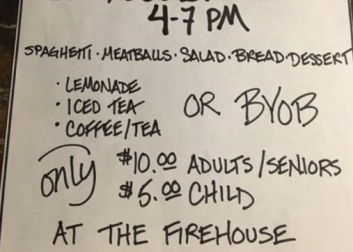 4-7 PM
SPAGHETTI · MEATBALLS · SALAD · BREAD · DESSERT
· LEMONADE
· ICED TEA
· COFFEE/TEA
OR BYOB
only
$10.00 ADULTS/SENIORS
$5.00 CHILD
AT THE FIREHOUSE